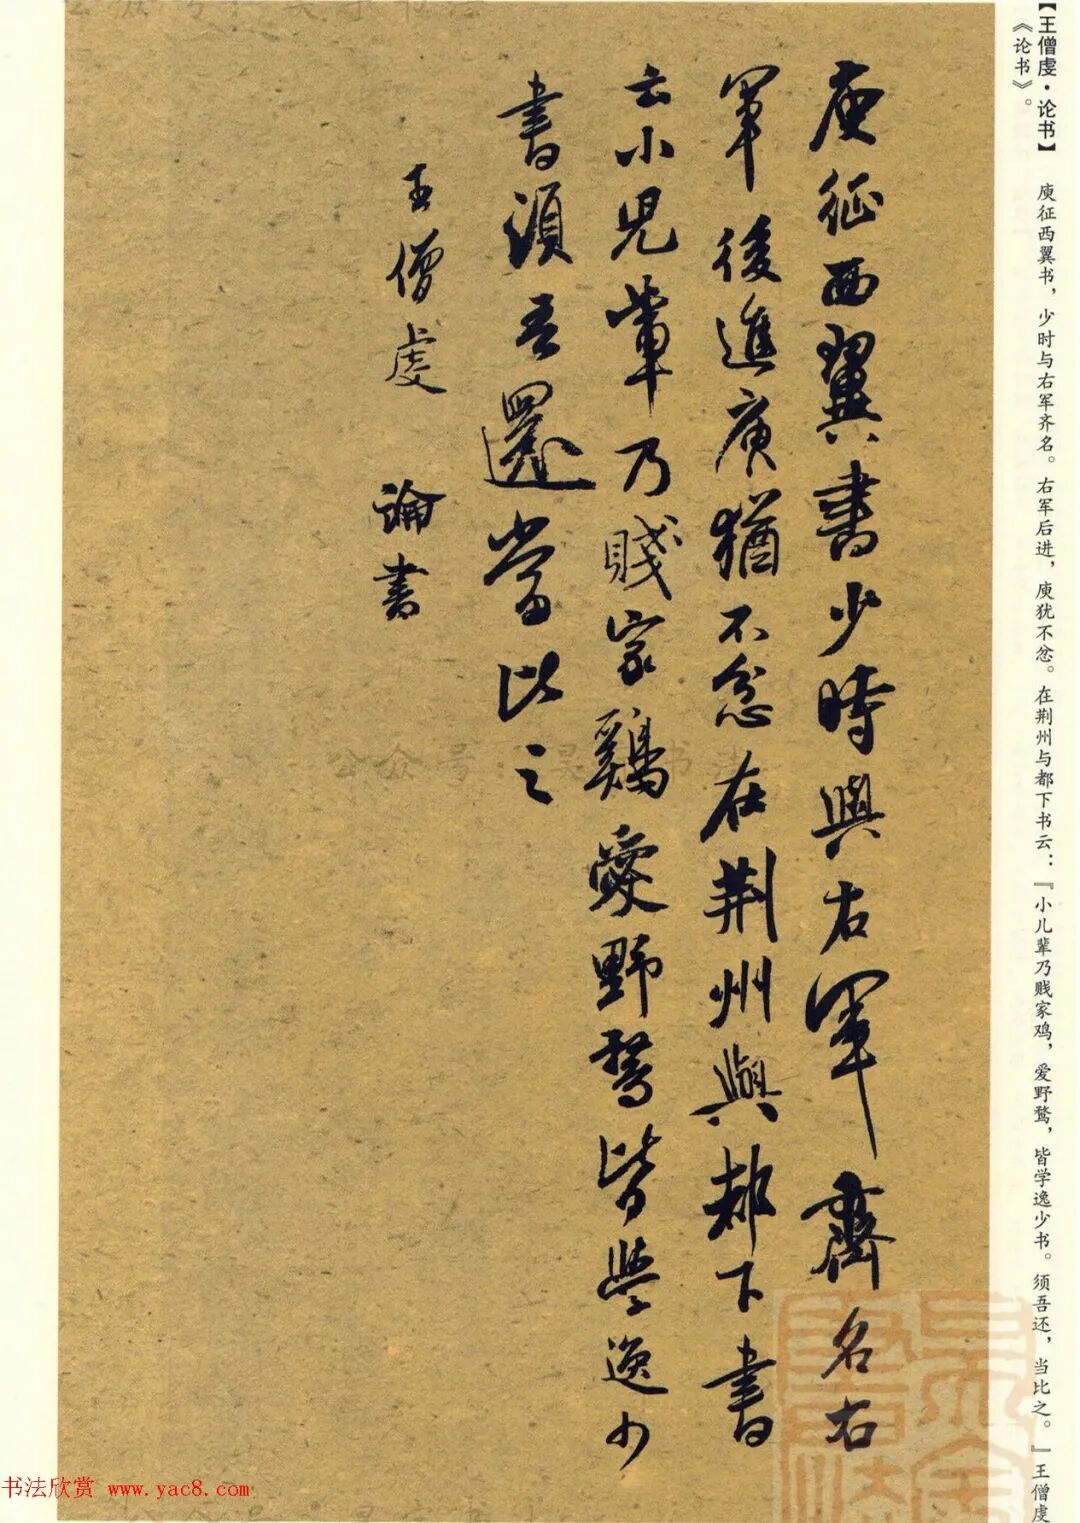 【王僧虔·论书】 庾征西翼书，少时与右军齐名。右军后进，庾犹不忿。在荆州与都下书云：『小儿辈乃贱家鸡，爱野鹜，皆学逸少书。须吾还，当比之。』王僧虔
《论书》。
庾征西翼書少時與右軍齊名右
軍後進庾猶不忿在荆州與都下書
云小兒輩乃賤家鷄愛野鶩皆學逸少
書須吾還當比之
王僧虔 論書
公众号
书法欣赏 www.yac8.com